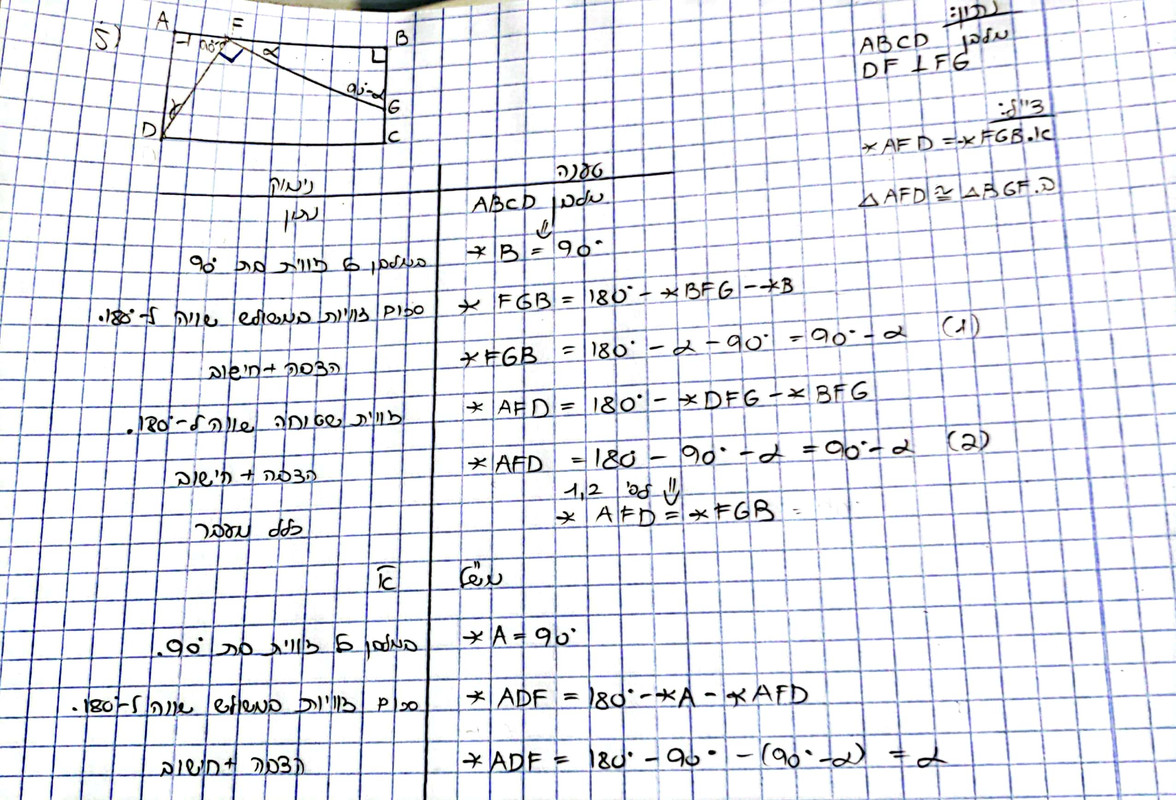 נתון:
ABCD מלבן
DF ⊥ FG
צ"ל:
א. ∢AFD = ∢FGB
ב. △AFD ≅ △BGF
A F B
α
90°-α
G
D C
טענה | נימוק
ABCD מלבן | נתון
⇓
∢B = 90° | במלבן כל זווית בת 90°
∢FGB = 180° - ∢BFG - ∢B | סכום זוויות במשולש שווה ל-180°.
∢FGB = 180° - α - 90° = 90° - α (1) | הצבה + חישוב
∢AFD = 180° - ∢DFG - ∢BFG | זווית שטוחה שווה ל-180°.
∢AFD = 180 - 90° - α = 90° - α (2) | הצבה + חישוב
לפי 1,2 ⇓
∢AFD = ∢FGB | כלל מעבר
מש"ל א
∢A = 90° | במלבן כל זווית בת 90°.
∢ADF = 180° - ∢A - ∢AFD | סכום זוויות במשולש שווה ל-180°.
∢ADF = 180° - 90° - (90° - α) = α | הצבה + חישוב